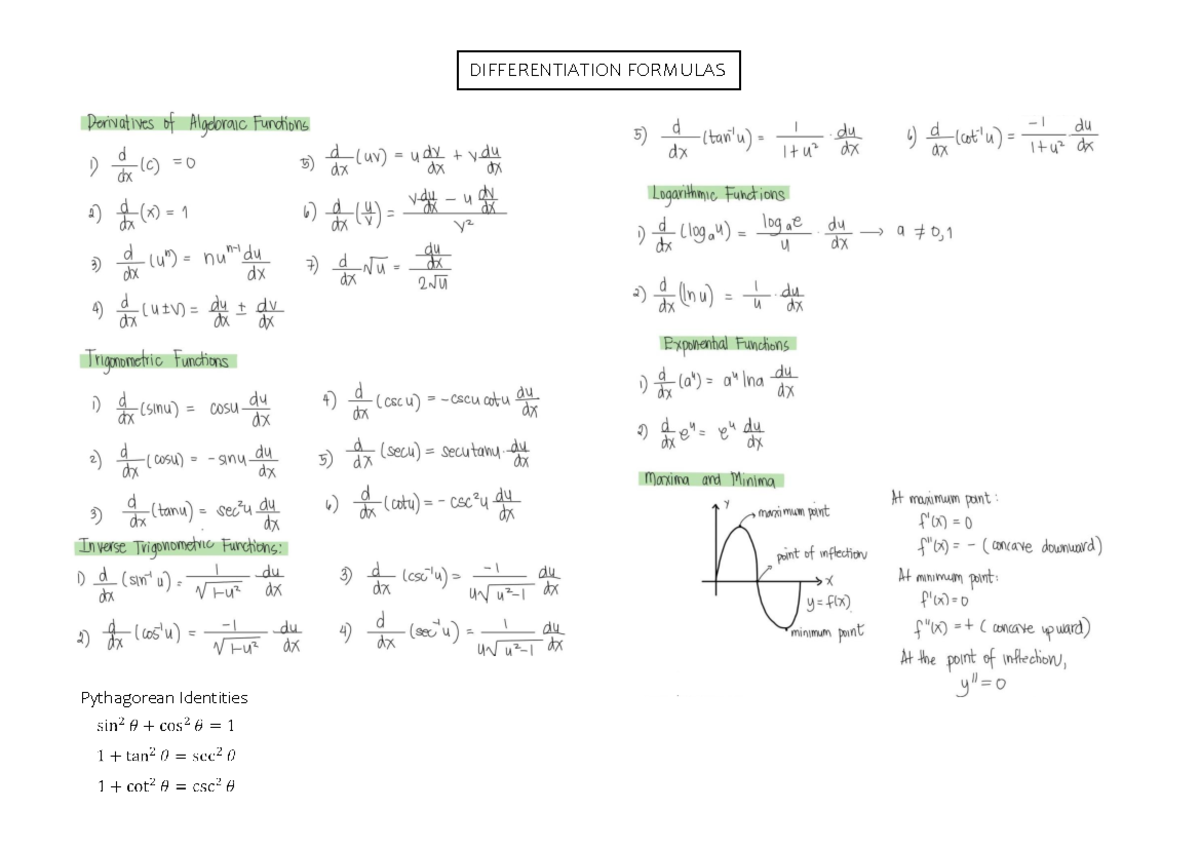 DIFFERENTIATION FORMULAS
Derivatives of Algebraic Functions
1) d/dx (c) = 0
2) d/dx (x) = 1
3) d/dx (uⁿ) = nuⁿ⁻¹ du/dx
4) d/dx (u ± v) = du/dx ± dv/dx
5) d/dx (uv) = u dv/dx + v du/dx
6) d/dx (u/v) = (v du/dx − u dv/dx) / v²
7) d/dx √u = (du/dx) / 2√u
Trigonometric Functions
1) d/dx (sinu) = cosu du/dx
2) d/dx (cosu) = -sinu du/dx
3) d/dx (tanu) = sec²u du/dx
4) d/dx (cscu) = -cscu cotu du/dx
5) d/dx (secu) = secutanu · du/dx
6) d/dx (cotu) = - csc²u du/dx
Inverse Trigonometric Functions:
1) d/dx (sin⁻¹ u) = 1/√(1-u²) du/dx
2) d/dx (cos⁻¹u) = -1/√(1-u²) du/dx
3) d/dx (csc⁻¹u) = -1/(u√(u²-1)) du/dx
4) d/dx (sec⁻¹u) = 1/(u√(u²-1)) du/dx
Pythagorean Identities
sin² θ + cos² θ = 1
1 + tan² θ = sec² θ
1 + cot² θ = csc² θ
5) d/dx (tan⁻¹u) = 1/(1+u²) · du/dx
6) d/dx (cot⁻¹u) = -1/(1+u²) · du/dx
Logarithmic Functions
1) d/dx (logₐu) = logₐe/u · du/dx → a ≠ 0,1
2) d/dx (ln u) = 1/u · du/dx
Exponential Functions
1) d/dx (aᵘ) = aᵘ lna du/dx
2) d/dx eᵘ = eᵘ du/dx
Maxima and Minima
y
maximum point
point of inflection
x
y = f(x)
minimum point
At maximum point:
f'(x) = 0
f"(x) = - (concave downward)
At minimum point:
f'(x) = 0
f"(x) = + (concave upward)
At the point of inflection,
y" = 0